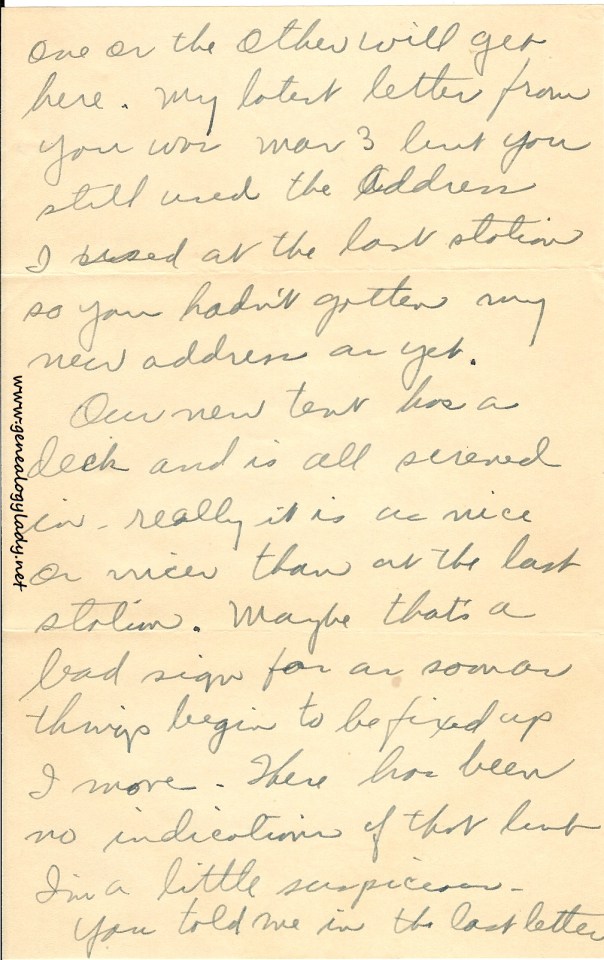 one or the other will get
here. My latest letter from
you was Mar 3 but you
still used the address
I used at the last station
so you hadn't gotten my
new address as yet.
Our new tent has a
deck and is all screned
in - really it is as nice
or nicer than at the last
station. Maybe that's a
bad sign for as soon as
things begin to be fixed up
I move. There has been
no indication of that but
I'm a little suspicious -
You told me in the last letter
www.genealogylady.net